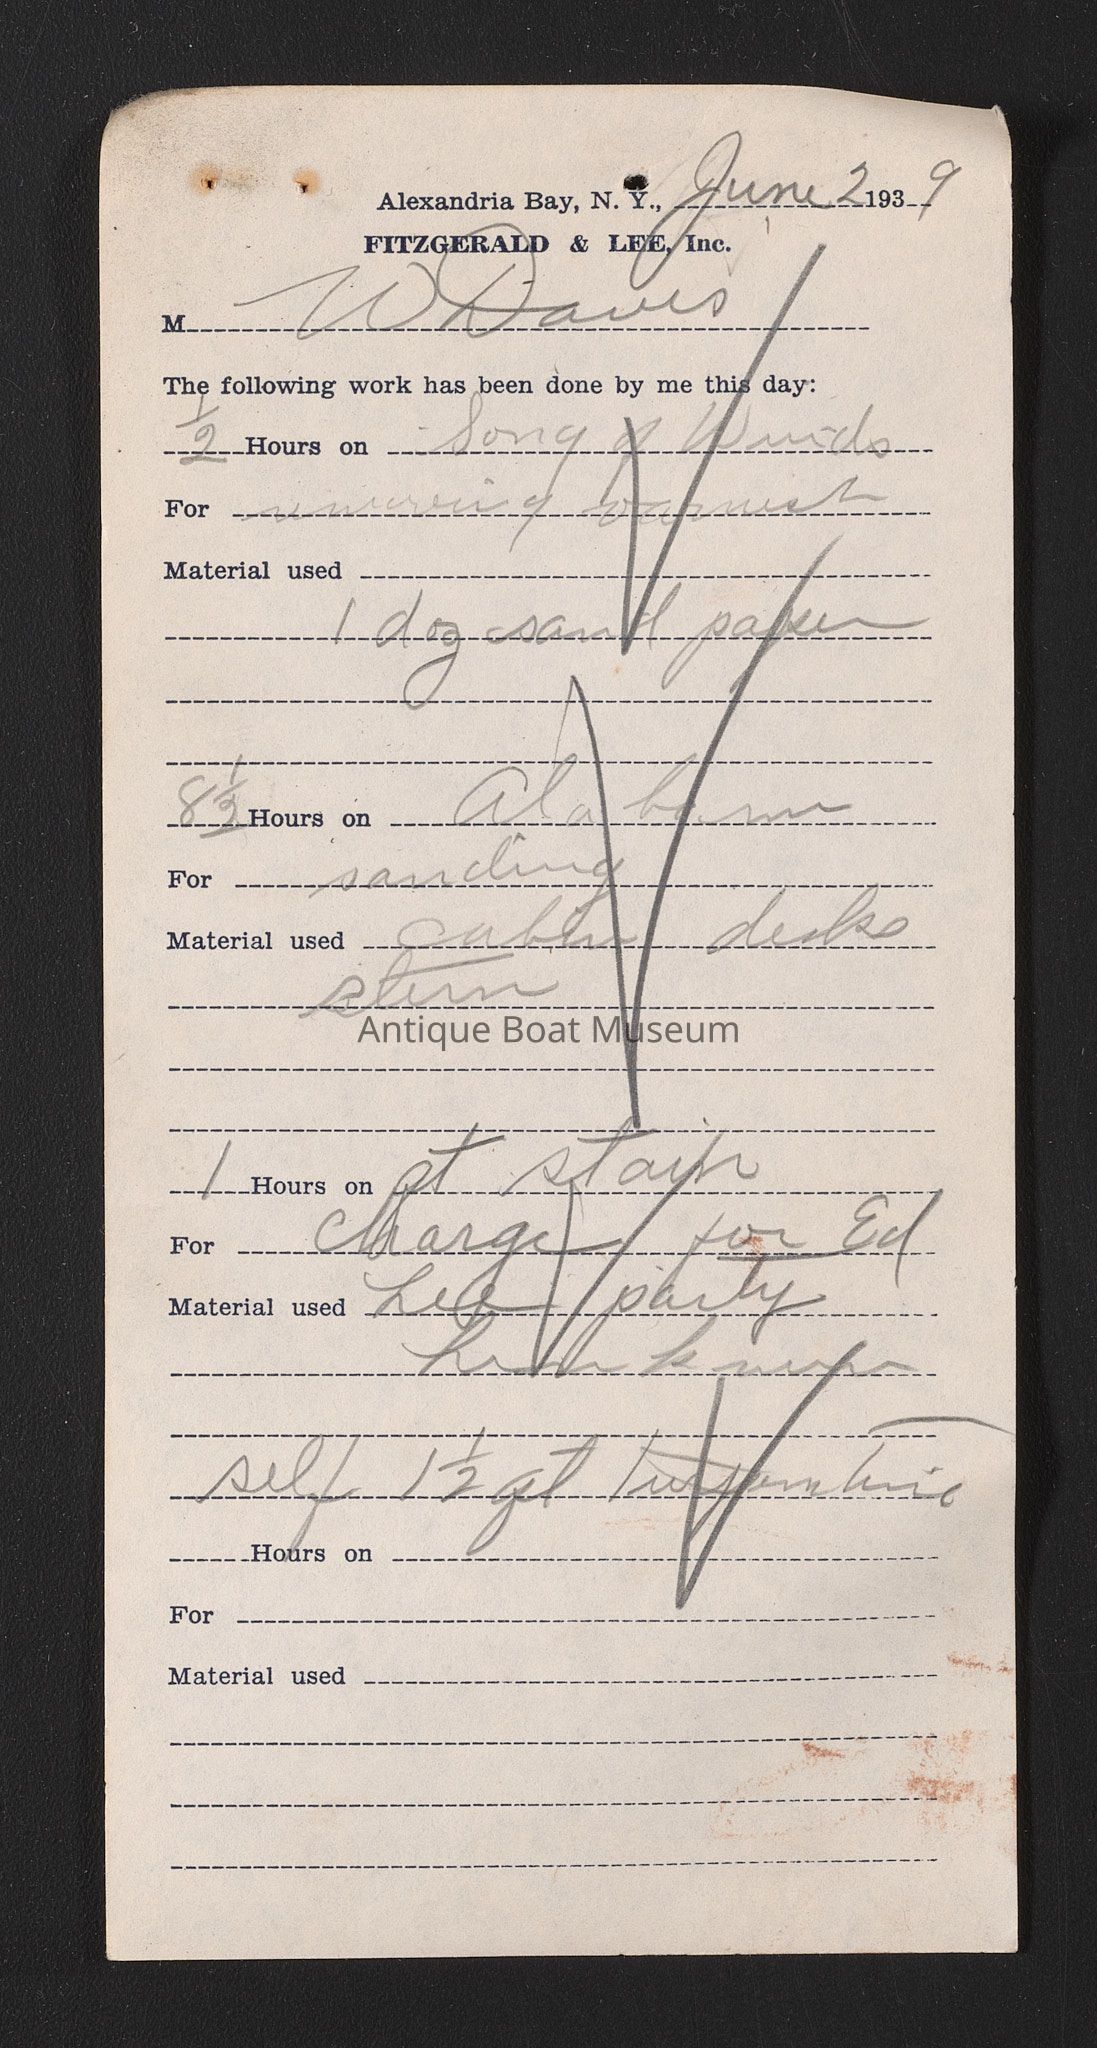 Alexandria Bay, N. Y., June 2 1939
FITZGERALD & LEE, Inc.
M W Davis
The following work has been done by me this day:
1/2 Hours on Song of Winds
For removing varnish
Material used
1 doz sand paper
8 1/2 Hours on Alabam
For sanding
Material used cabin decks
stern
Antique Boat Museum
1 Hours on qt stain
For charge for Ed
Material used Lee party
him
self 1 1/2 qt turpentine
Hours on
For
Material used